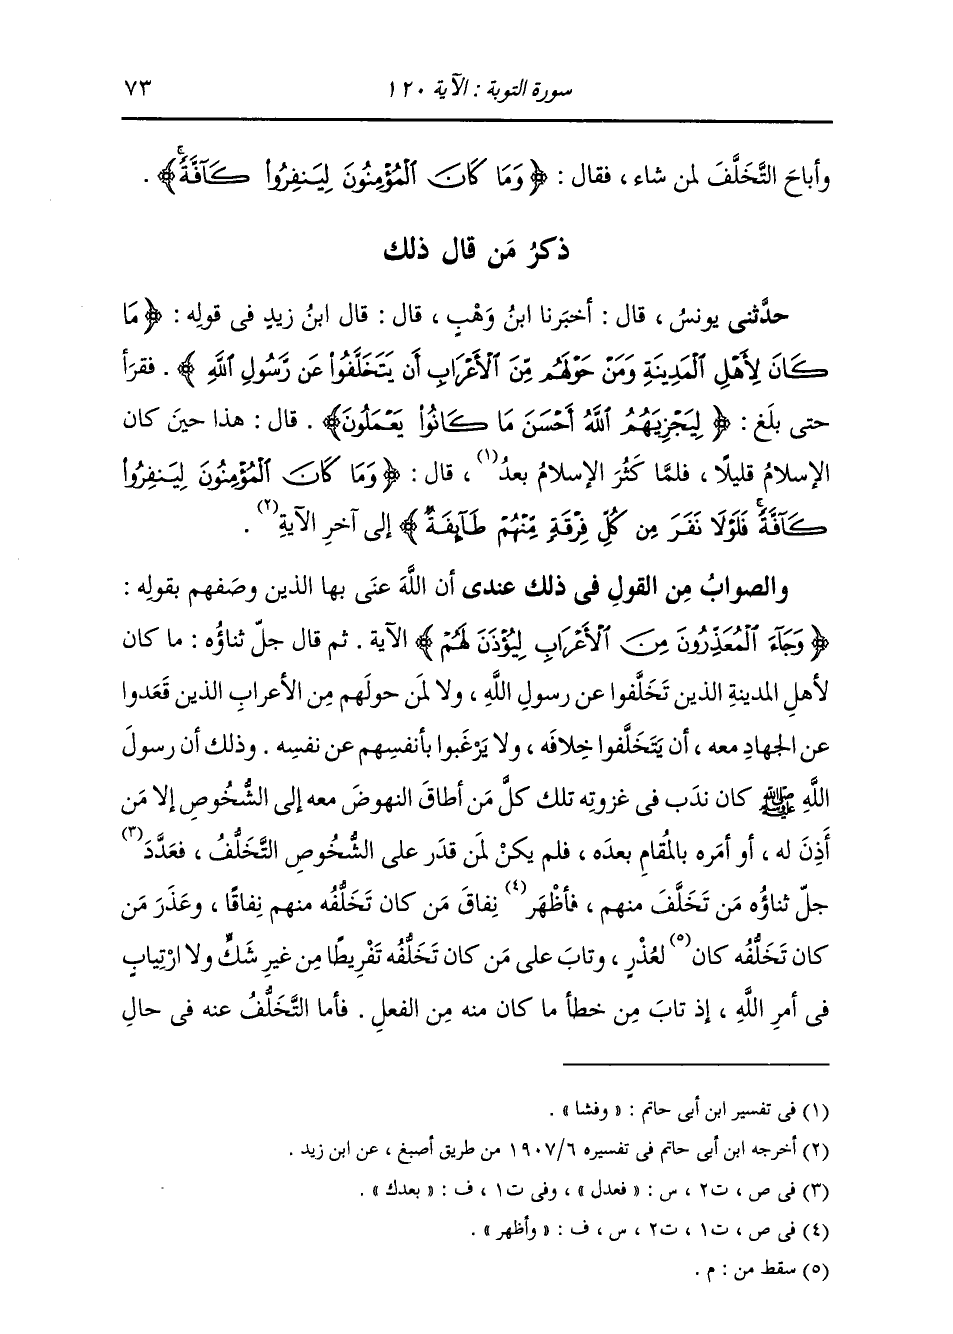 سورة التوبة : الآية ١٢٠ ٧٣
وأباحَ التَّخَلُّفَ لمن شاء ، فقال : ﴿ وَمَا كَانَ ٱلْمُؤْمِنُونَ لِيَنفِرُوا۟ كَآفَّةً ۚ ﴾ .
ذكرُ مَن قال ذلك
حدَّثنى يونسُ ، قال : أخبَرنا ابنُ وَهْبٍ ، قال : قال ابنُ زيدٍ فى قولِه : ﴿ مَا
كَانَ لِأَهْلِ ٱلْمَدِينَةِ وَمَنْ حَوْلَهُم مِّنَ ٱلْأَعْرَابِ أَن يَتَخَلَّفُوا۟ عَن رَّسُولِ ٱللَّهِ ﴾ . فقرَأ
حتى بلَغ : ﴿ لِيَجْزِيَهُمُ ٱللَّهُ أَحْسَنَ مَا كَانُوا۟ يَعْمَلُونَ﴾ . قال : هذا حينَ كان
الإسلامُ قليلًا ، فلمَّا كَثُرَ الإسلامُ بعدُ(١) ، قال : ﴿ وَمَا كَانَ ٱلْمُؤْمِنُونَ لِيَنفِرُوا۟
كَآفَّةً ۚ فَلَوْلَا نَفَرَ مِن كُلِّ فِرْقَةٍ مِّنْهُمْ طَآئِفَةٌ ﴾ إلى آخرِ الآيةِ(٢) .
والصوابُ مِن القولِ فى ذلك عندى أن اللَّهَ عنَى بها الذين وصَفهم بقولِه :
﴿ وَجَآءَ ٱلْمُعَذِّرُونَ مِنَ ٱلْأَعْرَابِ لِيُؤْذَنَ لَهُمْ ﴾ الآية . ثم قال جلّ ثناؤُه : ما كان
لأهلِ المدينةِ الذين تَخَلَّفوا عن رسولِ اللَّهِ ، ولا لمَن حولَهم مِن الأعرابِ الذين قَعَدوا
عن الجهادِ معه ، أن يَتَخَلَّفوا خِلافَه ، ولا يَرْغَبوا بأنفسِهم عن نفسِه . وذلك أن رسولَ
اللَّهِ ﷺ كان ندَب فى غزوتِه تلك كلَّ مَن أطاقَ النهوضَ معه إلى الشُّخُوصِ إلا مَن
أَذِنَ له ، أو أمَره بالمُقامِ بعدَه ، فلم يكنْ لمَن قدَر على الشُّخُوصِ التَّخَلُّفُ ، فعَدَّدَ(٣)
جلّ ثناؤُه مَن تَخَلَّفَ منهم ، فأظْهَر(٤) نِفاقَ مَن كان تَخَلُّفُه منهم نِفاقًا ، وعَذَرَ مَن
كان تَخَلُّفُه كان(٥) لعُذْرٍ ، وتابَ على مَن كان تَخَلُّفُه تَفْرِيطًا مِن غيرِ شَكٍّ ولا ارْتِيابٍ
فى أمرِ اللَّهِ ، إذ تابَ مِن خطأ ما كان منه مِن الفعلِ . فأما التَّخَلُّفُ عنه فى حالِ
(١) فى تفسير ابن أبى حاتم : « وفشا » .
(٢) أخرجه ابن أبى حاتم فى تفسيره ١٩٠٧/٦ من طريق أصبغ ، عن ابن زيد .
(٣) فى ص ، ت٢ ، س : « فعدل » ، وفى ت١ ، ف : « بعدك » .
(٤) فى ص ، ت١ ، ت٢ ، س ، ف : « وأظهر » .
(٥) سقط من : م .